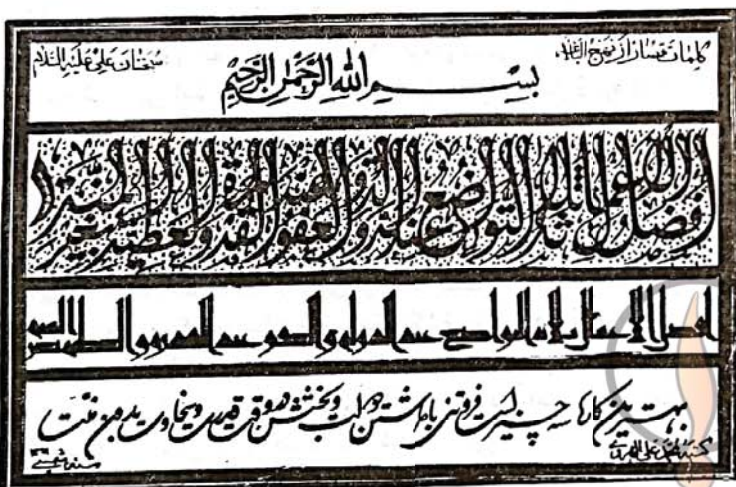 کلمات قصار از نهج البلاغه
بِسْمِ اللهِ الرَّحْمٰنِ الرَّحِیْمِ
سخنان علی علیه السلام
افضل الاعمال ثلاثة التواضع عند الدولة و العفو عند القدرة و العطية بغير المنة
افضل الاعمال ثلاثه التواضع عند الدوله و العفو عند القدره و العطیه بغیر المنه
بهترین کارها سه چیز است فروتنی با داشتن دولت و بخشش موقع قدرت و سخاوت بدون منت
کتبه محمد علی
سنه شمسی